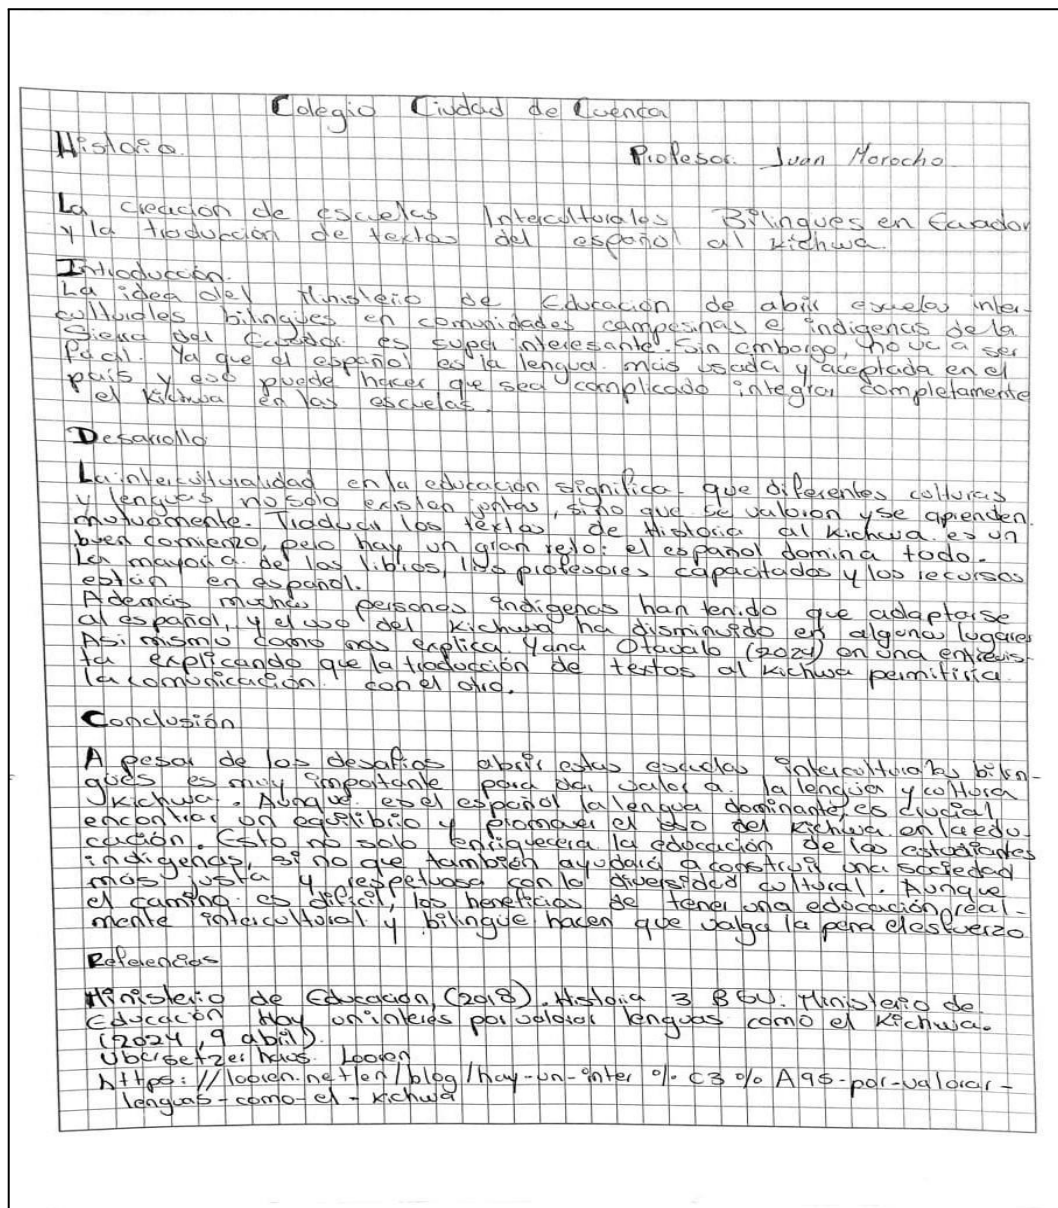 Colegio Ciudad de Cuenca
Historia. Profesor. Juan Morocho
La creación de escuelas Interculturales Bilingues en Ecuador
y la traducción de textos del español al kichwa.
Introducción.
La idea del Ministerio de Educación de abrir escuelas inter-
culturales bilingues en comunidades campesinas e indigenas de la
Sierra del Ecuador es super interesante. Sin embargo, no va a ser
fácil. Ya que el español es la lengua más usada y aceptada en el
país y eso puede hacer que sea complicado integrar completamente
el kichwa en las escuelas.
Desarrollo
La interculturalidad en la educación significa que diferentes culturas
y lenguas no solo existan juntas, sino que se valoran y se aprenden
mutuamente. Traducir los textos de Historia al kichwa es un
buen comienzo, pero hay un gran reto: el español domina todo.
La mayoría de los libros, los profesores capacitados y los recursos
están en español.
Además muchas personas indigenas han tenido que adaptarse
al español, y el uso del kichwa ha disminuido en algunos lugares
Asi mismo como nos explica Yana Otavalo (2024) en una entrevis-
ta explicando que la traducción de textos al kichwa permitiria
la comunicación con el otro.
Conclusión
A pesar de los desafios abrir estas escuelas interculturales bilin-
gües es muy importante para dar valor a la lengua y cultura
kichwa. Aunque es el español la lengua dominante, es crucial
encontrar un equilibrio y promover el uso del kichwa en la edu-
cación. Esto no solo enriquecera la educación de los estudiantes
indigenas, si no que también ayudará a construir una sociedad
más justa y respetuosa con la diversidad cultural. Aunque
el camino es difícil, los beneficios de tener una educación real-
mente intercultural y bilingüe hacen que valga la pena el esfuerzo
Referencias
Ministerio de Educación (2018). Historia 3 BGU. Ministerio de
Educación Hay un interes por valorar lenguas como el Kichwa.
(2024, 9 abril).
Ubersetzerhaus Looren
https://looren.net/en/blog/hay-un-inter%C3%A9s-por-valorar-
lenguas-como-el-kichwa